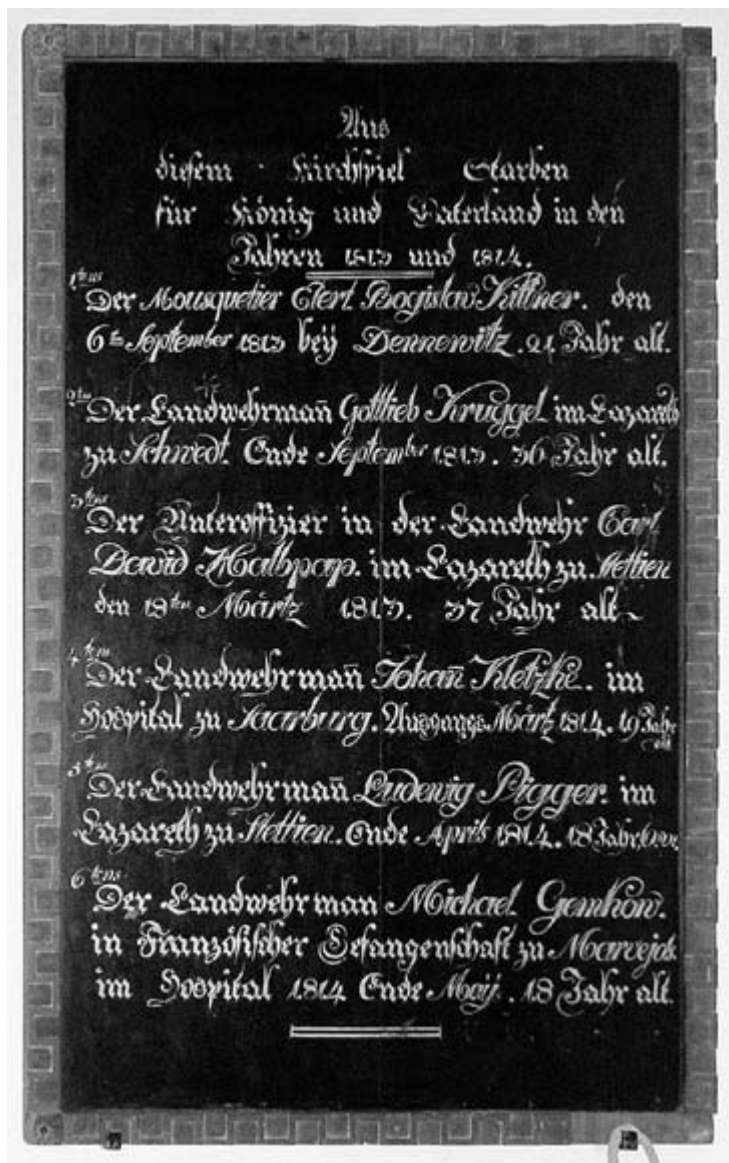 Aus
diesem Kirchspiel Starben
für König und Vaterland in den
Jahren 1813 und 1814.
1tens Der Mousquetier Bogislav Kittner. den
6ten September 1813 beÿ Dennewitz. 21 Jahr alt.
2tens Der Landwehrman̄ Gottlieb Kruggel im Lazareth
zu Schwedt. Ende September 1813. 36 Jahr alt.
3tens Der Unteroffizier in der Landwehr Carl
David Halbpap. im Lazareth zu Stettien
den 18ten Märtz 1813. 37 Jahr alt
4tens Der Landwehrman̄ Johan̄ Kletzke. im
Hospital zu Saarburg. Ausgangs Märtz 1814. 19 Jahr alt
5tens Der Landwehrman̄ Ludewig Pigger. im
Lazareth zu Stettien. Ende Aprils 1814. 18 Jahr
6tens Der Landwehrman Michael Gemkow.
in Französischer Gefangenschaft zu Marvejols
im Hospital 1814 Ende Maÿ. 18 Jahr alt.